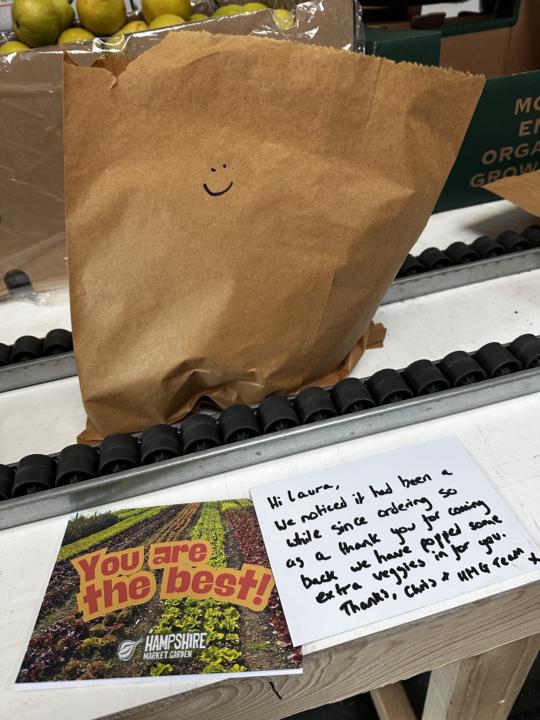 MO
EN
ORGA
GROW
Hi Laura,
We noticed it had been a
while since ordering so
as a thank you for coming
back we have popped some
extra veggies in for you.
Thanks, Chris + HMG Team x
You are
the best!
HAMPSHIRE
MARKET GARDEN